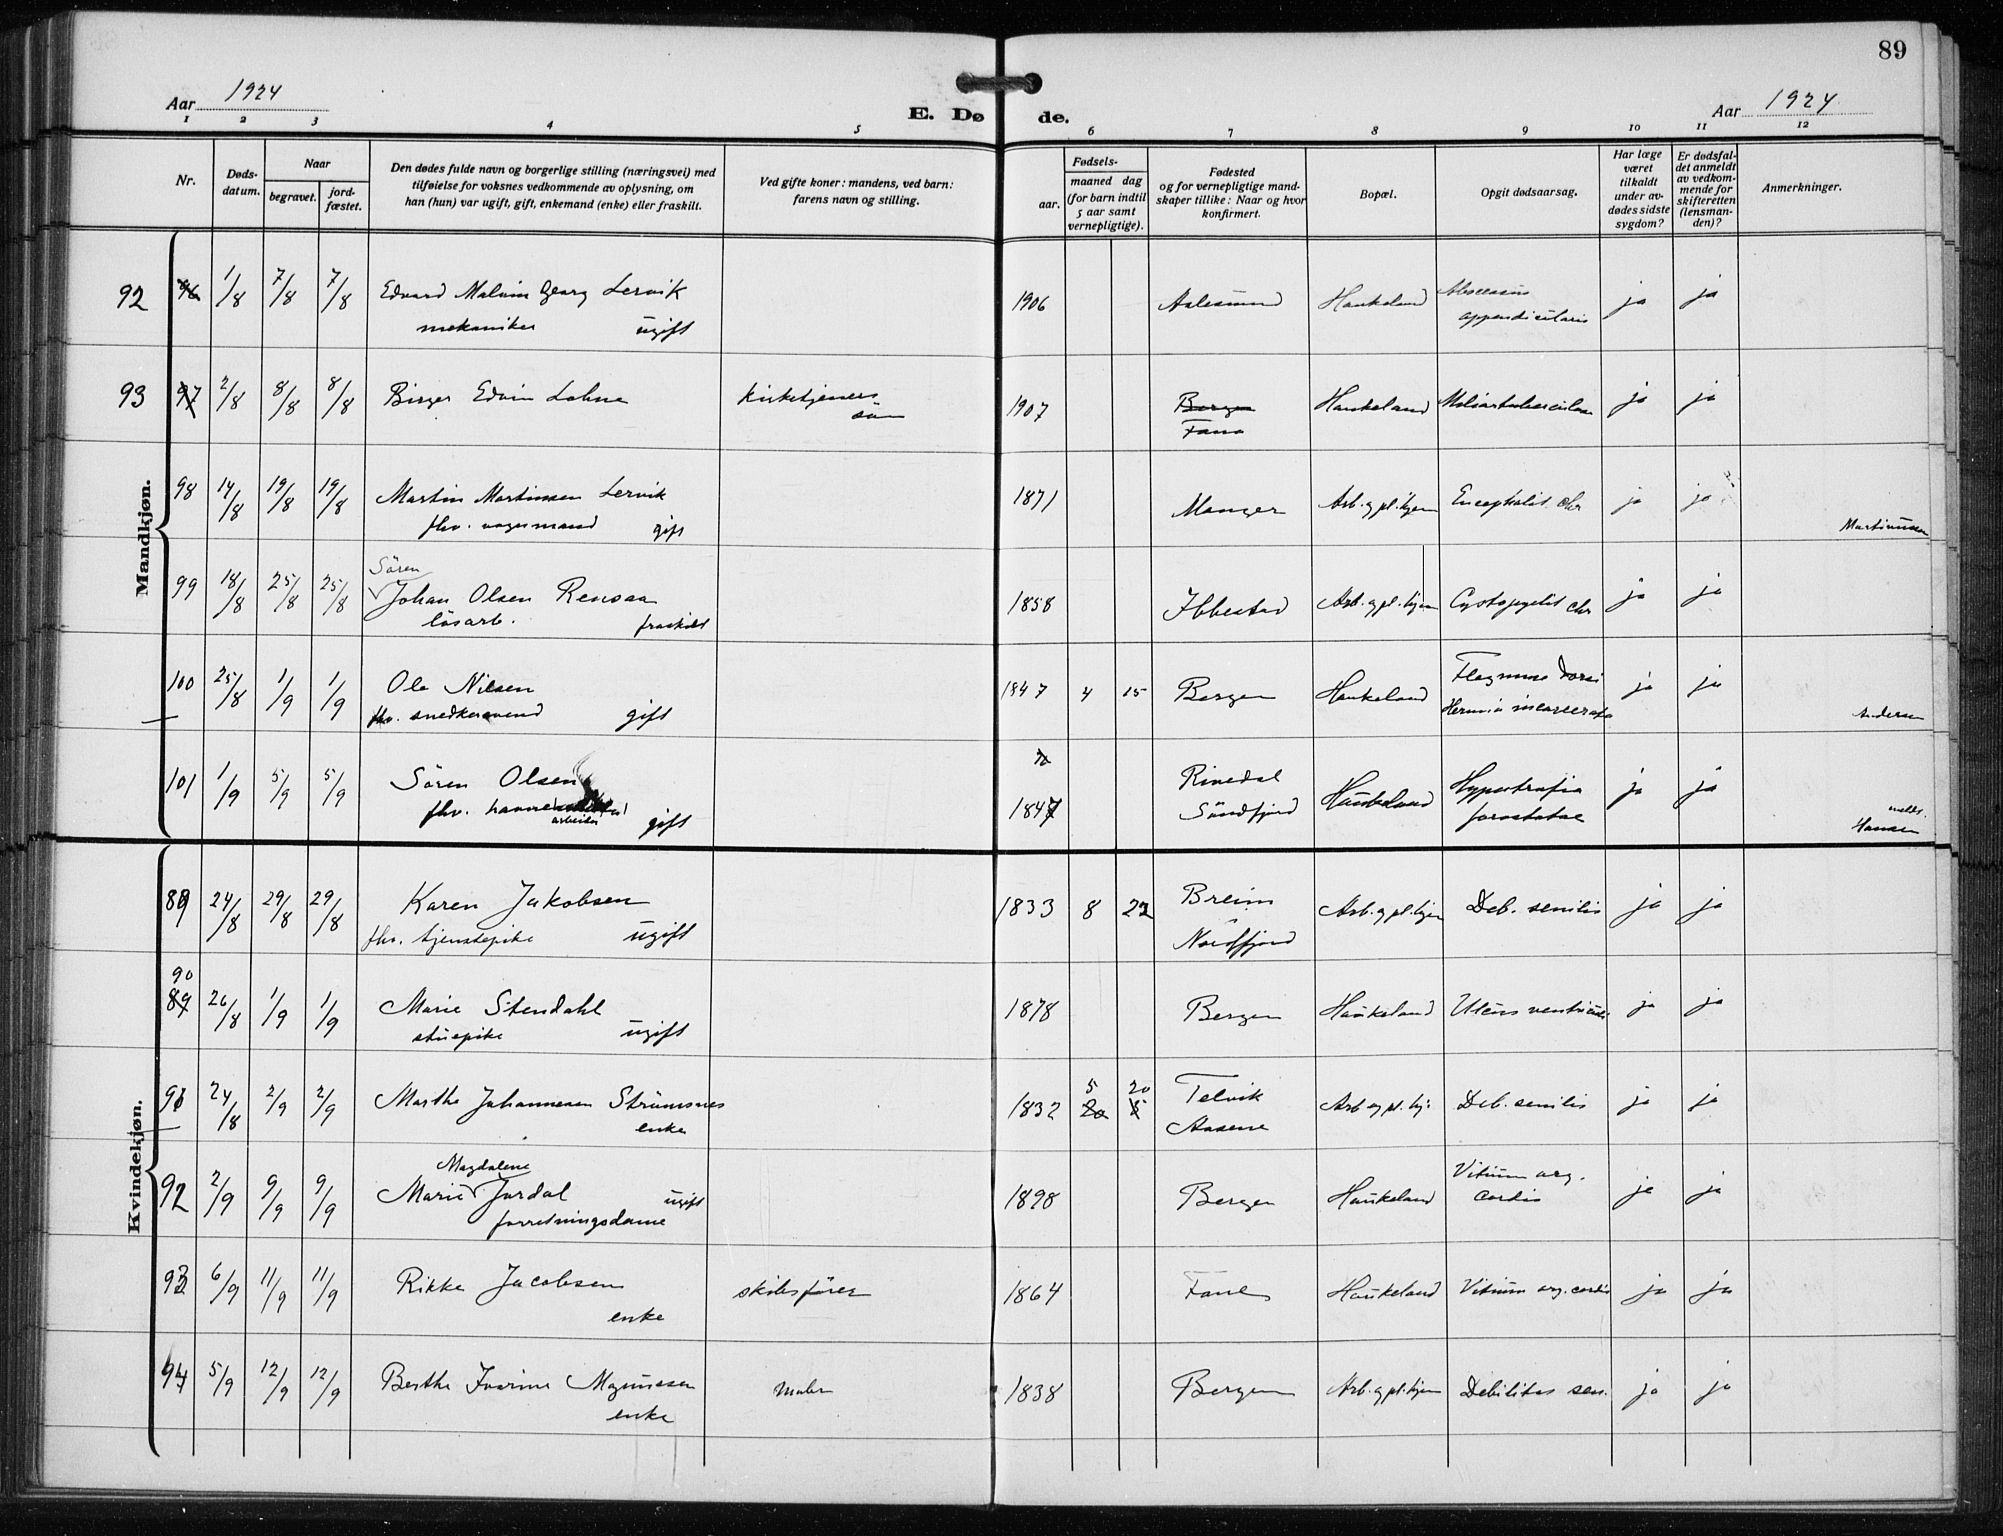 89
Aar 1924
E. Dø de.
Aar 1924
1 2 3 4 5 6 7 8 9 10 11 12
Nr.
Døds-
datum.
Naar
begravet.
jord-
fæstet.
Den dødes fulde navn og borgerlige stilling (næringsvei) med
tilføielse for voksnes vedkommende av oplysning, om
han (hun) var ugift, gift, enkemand (enke) eller fraskilt.
Ved gifte koner: mandens, ved barn:
farens navn og stilling.
Fødsels-
aar.
maaned dag
(for barn indtil
5 aar samt
vernepligtige).
Fødested
og for vernepligtige mand-
skaper tillike: Naar og hvor
konfirmert.
Bopæl.
Opgit dødsaarsag.
Har læge
været
tilkaldt
under av-
dødes sidste
sygdom?
Er dødsfal-
det anmeldt
av vedkom-
mende for
skifteretten
(lensman-
den)?
Anmerkninger.
Mandkjøn.
92 96 1/8 7/8 7/8 Edvard Malvin Georg Lervik 1906 Aalesund Haukeland Abscessus ja ja
mekaniker ugift appendicularis
93 97 2/8 8/8 8/8 Birger Edvin Lohne kirketjeners 1907 Bergen Haukeland Miliartuberculose ja ja
sön Fana
98 14/8 19/8 19/8 Martin Martinsen Lervik 1871 Manger Arb. og pl. hjem Encephalit chr ja ja
fhv. vognmand gift Martinussen
Sören
99 18/8 25/8 25/8 Johan Olsen Rensaa 1858 Ibbestad Arb. og pl. hjem Cystopyelit chr ja ja
lösarb. fraskilt
100 25/8 1/9 1/9 Ole Nilsen 1847 4 15 Bergen Haukeland Flegmone dorsi ja ja
fhv. snedkersvend gift Hernia incarcerata Andersen
101 1/9 5/9 5/9 Sören Olsen 1847 Rivedal Haukeland Hypertrofia ja ja
fhv. havne arbeider gift Söndfjord prostatae meldt. Hansen
Kvindekjøn.
89 24/8 29/8 29/8 Karen Jakobsen 1833 8 22 Breim Arb. og pl. hjem Deb. senilis ja ja
fhv. tjenstepike ugift Nordfjord
90
89 26/8 1/9 1/9 Marie Stendahl 1878 Bergen Haukeland Ulcus ventriculi ja ja
stuepike ugift
91 24/8 2/9 2/9 Marthe Johannesen Strömsnes 1832 5 20 Telvik Arb og pl. hj. Deb. senilis ja ja
enke 20 5 Aasene
Magdalene
92 2/9 9/9 9/9 Marie Jordal ugift 1898 Bergen Haukeland Vitium org. ja ja
forretningsdame cordis
93 6/9 11/9 11/9 Rikke Jacobsen skibsförer 1864 Fane Haukeland Vitium org. cordis ja ja
enke
94 5/9 12/9 12/9 Berthe Ivarine Magnussen maler 1838 Bergen Arb. og pl. hjem Debilitas sen. ja ja
enke